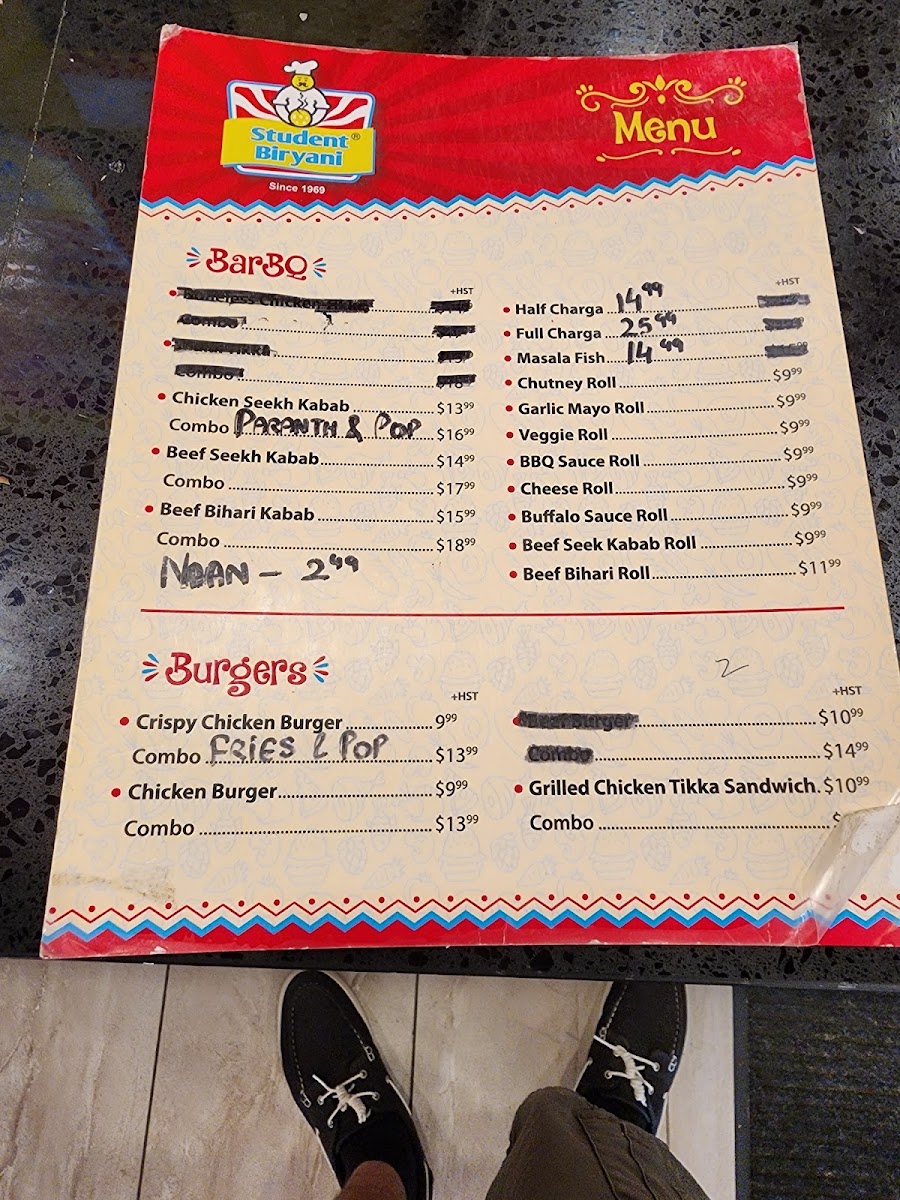 Student®
Biryani
Since 1969
Menu
BarBQ
+HST
Boneless Chicken
Combo
Combo
Chicken Seekh Kabab $13⁹⁹
Combo PARANTH & POP $16⁹⁹
Beef Seekh Kabab $14⁹⁹
Combo $17⁹⁹
Beef Bihari Kabab $15⁹⁹
Combo $18⁹⁹
NAAN - 2⁹⁹
+HST
Half Charga 14⁹⁹
Full Charga 25⁹⁹
Masala Fish 14⁹⁹
Chutney Roll $9⁹⁹
Garlic Mayo Roll $9⁹⁹
Veggie Roll $9⁹⁹
BBQ Sauce Roll $9⁹⁹
Cheese Roll $9⁹⁹
Buffalo Sauce Roll $9⁹⁹
Beef Seek Kabab Roll $9⁹⁹
Beef Bihari Roll $11⁹⁹
Burgers
+HST
Crispy Chicken Burger 9⁹⁹
Combo FRIES & POP $13⁹⁹
Chicken Burger $9⁹⁹
Combo $13⁹⁹
2
+HST
Beef Burger $10⁹⁹
Combo $14⁹⁹
Grilled Chicken Tikka Sandwich. $10⁹⁹
Combo $